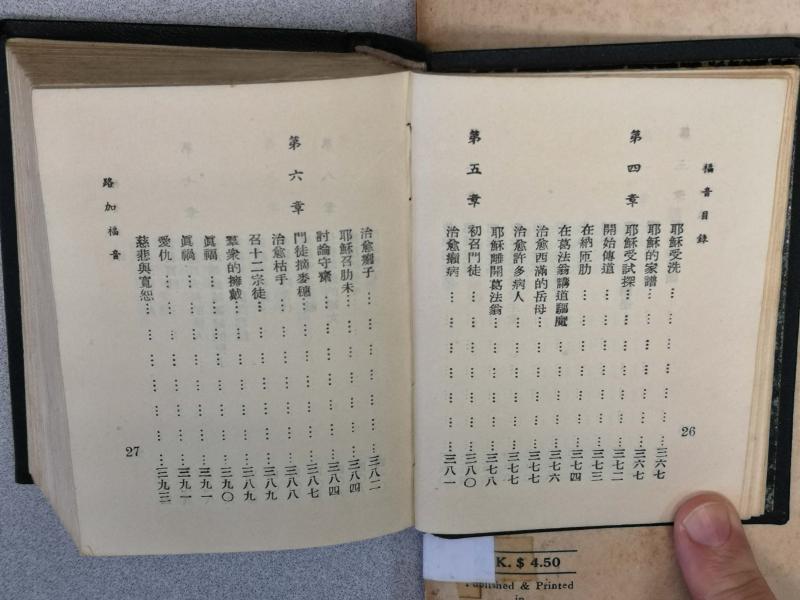 福音目錄
耶穌受洗……三六七
耶穌的家譜……三六七
第四章
耶穌受試探……三七二
開始傳道……三七三
在納匝肋……三七四
在葛法翁講道驅魔……三七六
治愈西滿的岳母……三七七
治愈許多病人……三七七
耶穌離開葛法翁……三七八
第五章
初召門徒……三八〇
治愈癩病……三八一
26
治愈癱子……三八二
耶穌召肋未……三八四
討論守齋……三八四
第六章
門徒摘麥穗……三八七
治愈枯手……三八八
召十二宗徒……三八九
羣衆的擁戴……三八九
眞福……三九〇
眞禍……三九一
愛仇……三九一
慈悲與寬恕……三九三
路加福音
27
K. $ 4.50
Published & Printed
in